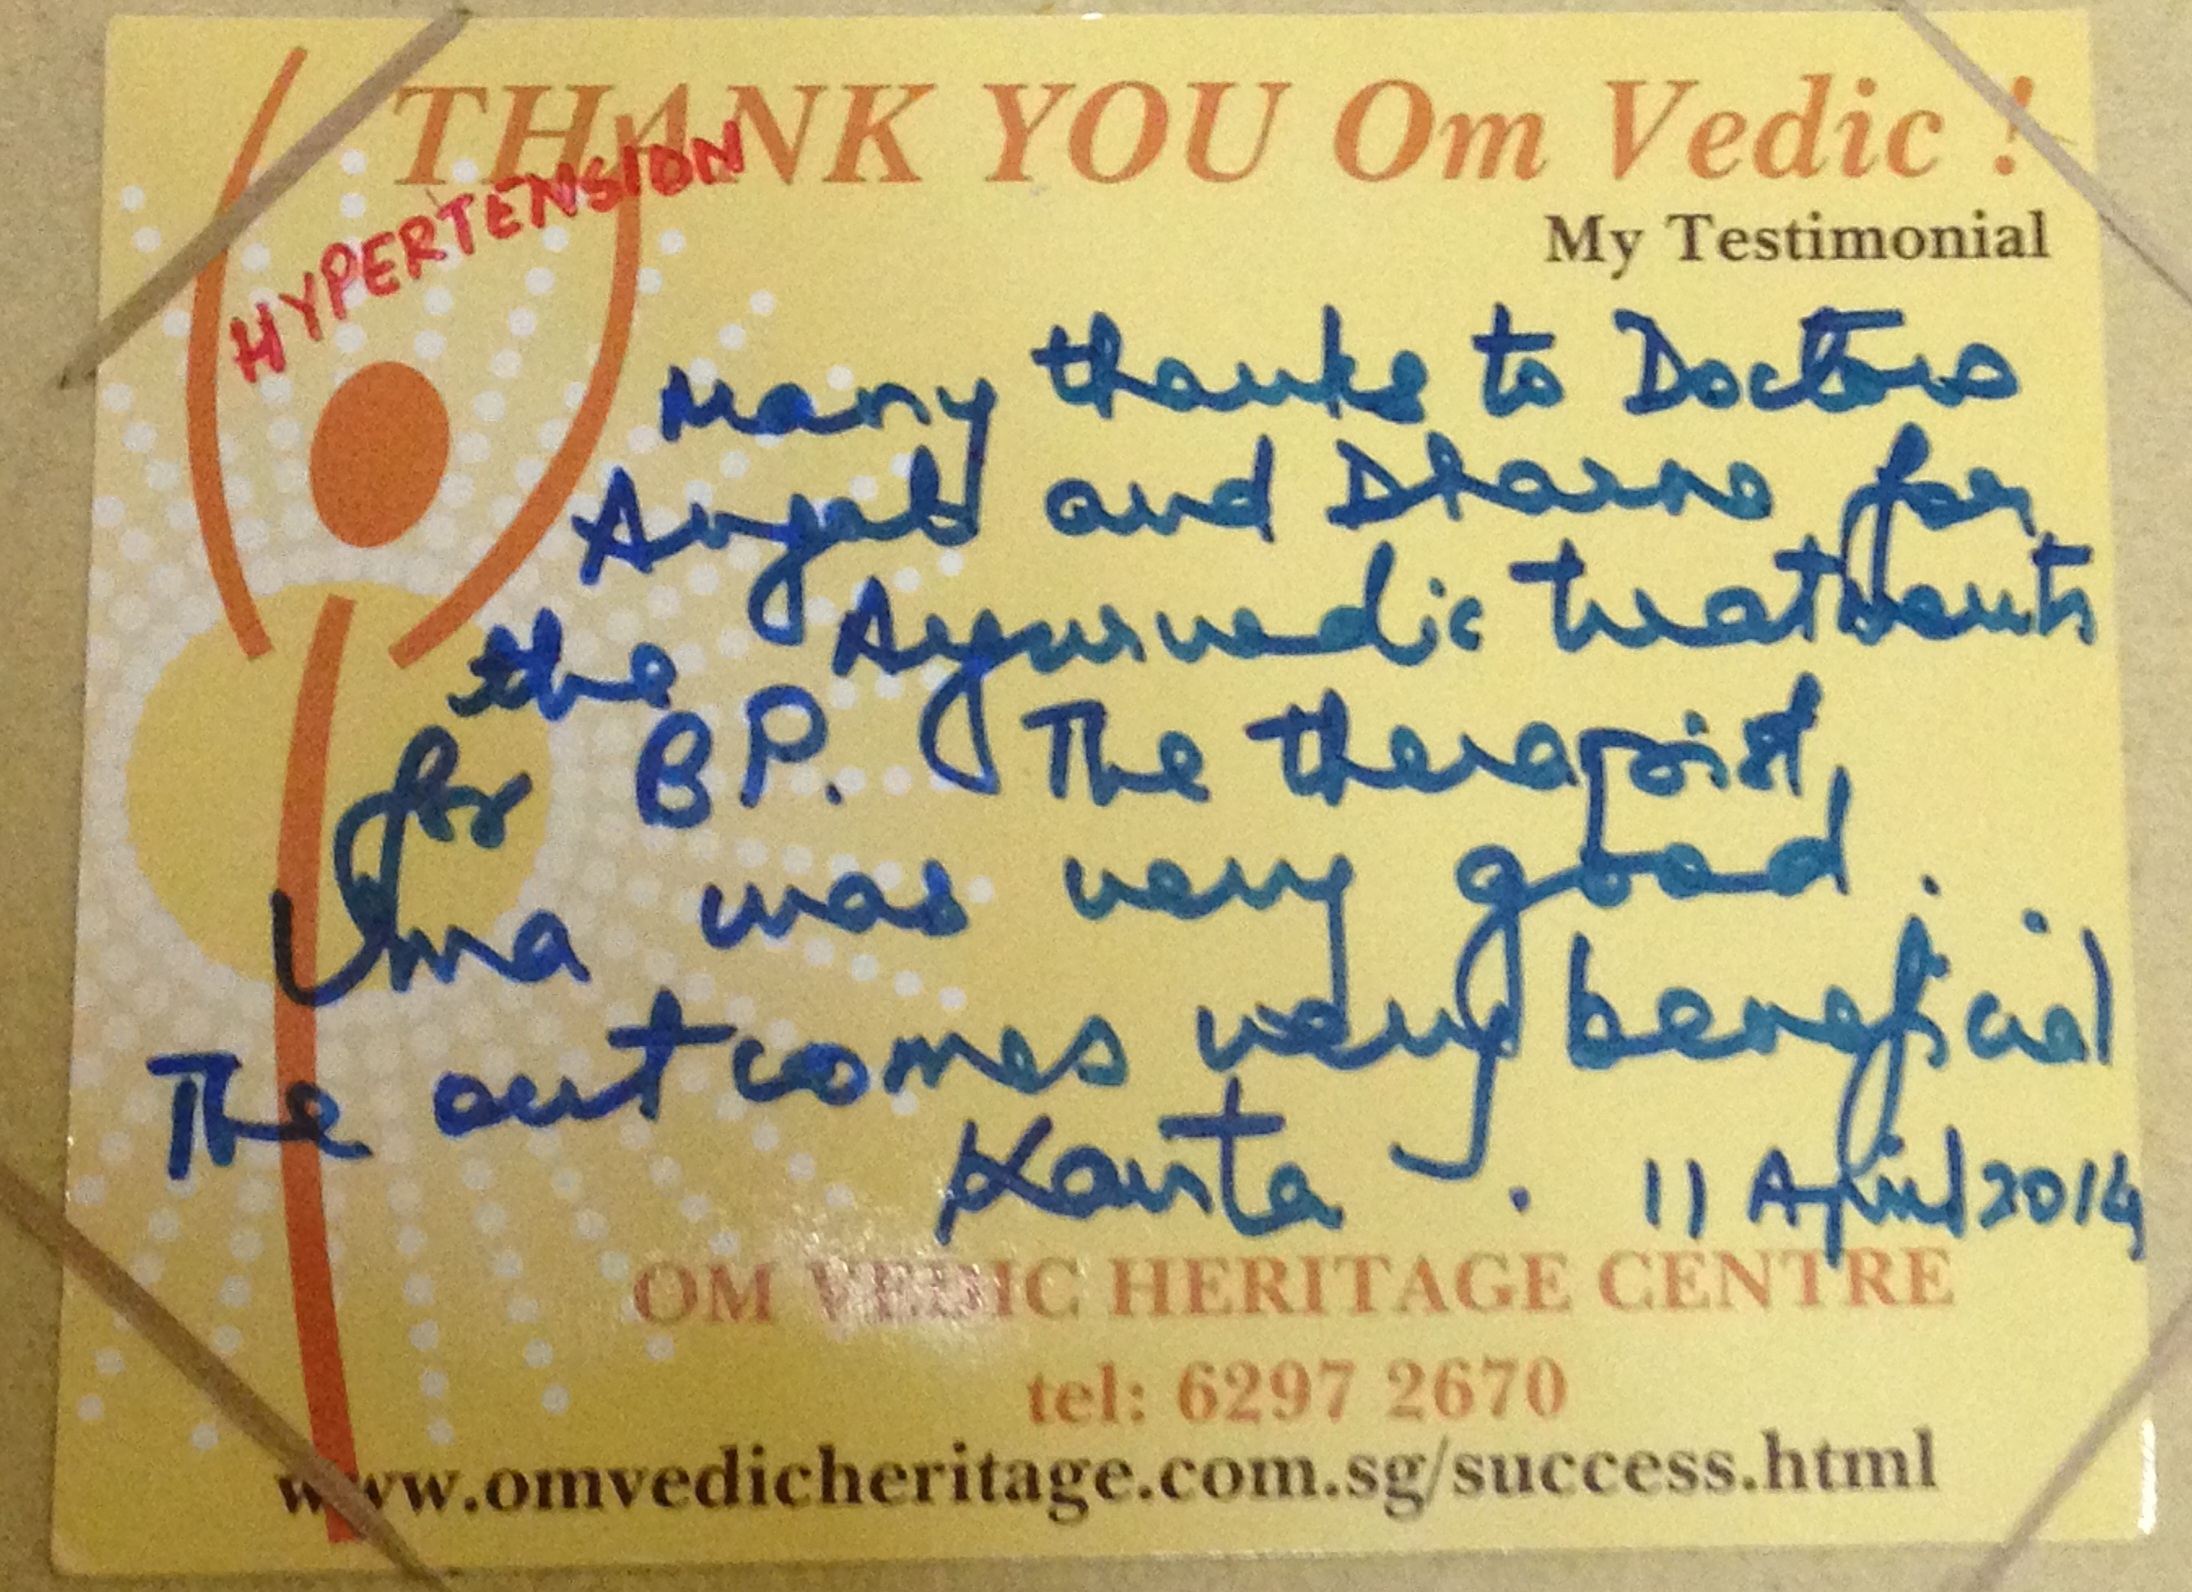 THANK YOU Om Vedic !
HYPERTENSION
My Testimonial
Many thanks to Doctors
and for
the Ayurvedic treatments
for BP. The therapist,
Uma was very good.
The outcomes very beneficial
Kanta . 11 April 2014
OM VEDIC HERITAGE CENTRE
tel: 6297 2670
www.omvedicheritage.com.sg/success.html